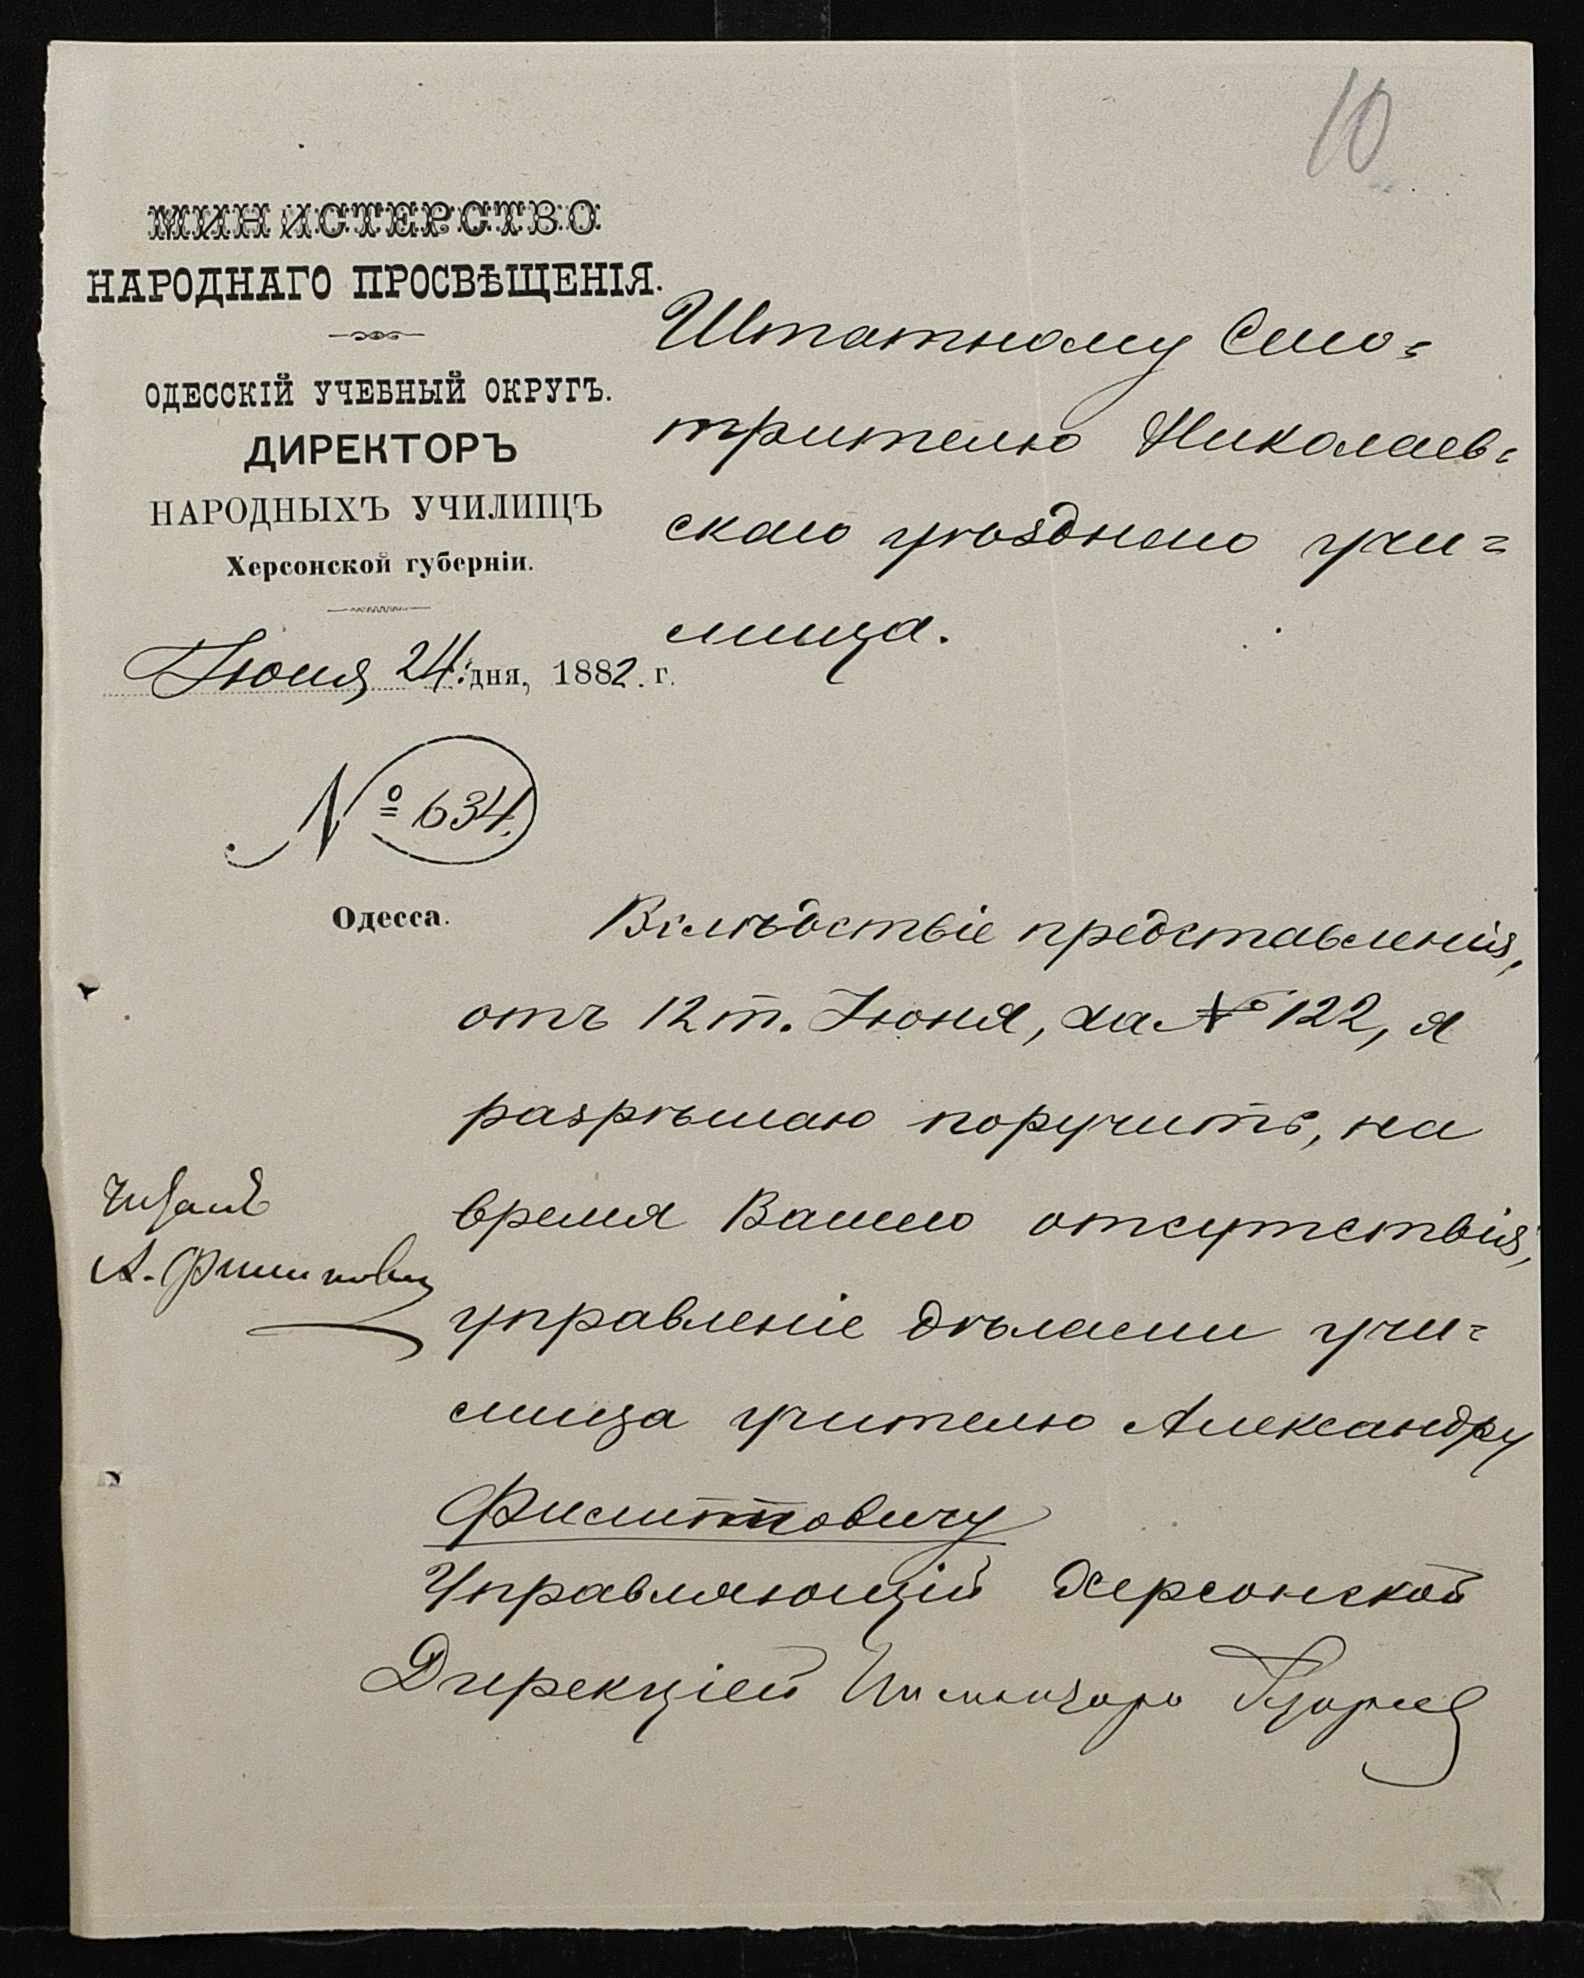 10
МИНИСТЕРСТВО
НАРОДНАГО ПРОСВѢЩЕНІЯ.
ОДЕССКІЙ УЧЕБНЫЙ ОКРУГЪ.
ДИРЕКТОРЪ
НАРОДНЫХЪ УЧИЛИЩЪ
Херсонской губерніи.
Іюня 24 дня, 1882. г.
№ 634.
Одесса.
Штатному Смо=
трителю Николаев=
скаго уѣзднаго учи=
лища.
Вслѣдствіе представленія,
отъ 12 т. Іюня, за № 122, я
разрѣшаю поручить, на
время Вашего отсутствія,
управленіе дѣлами учи=
лища учителю Александру
Филипповичу
Управляющій Херсонской
Дирекціей Инспекторъ
Читалъ
А. Филиппович